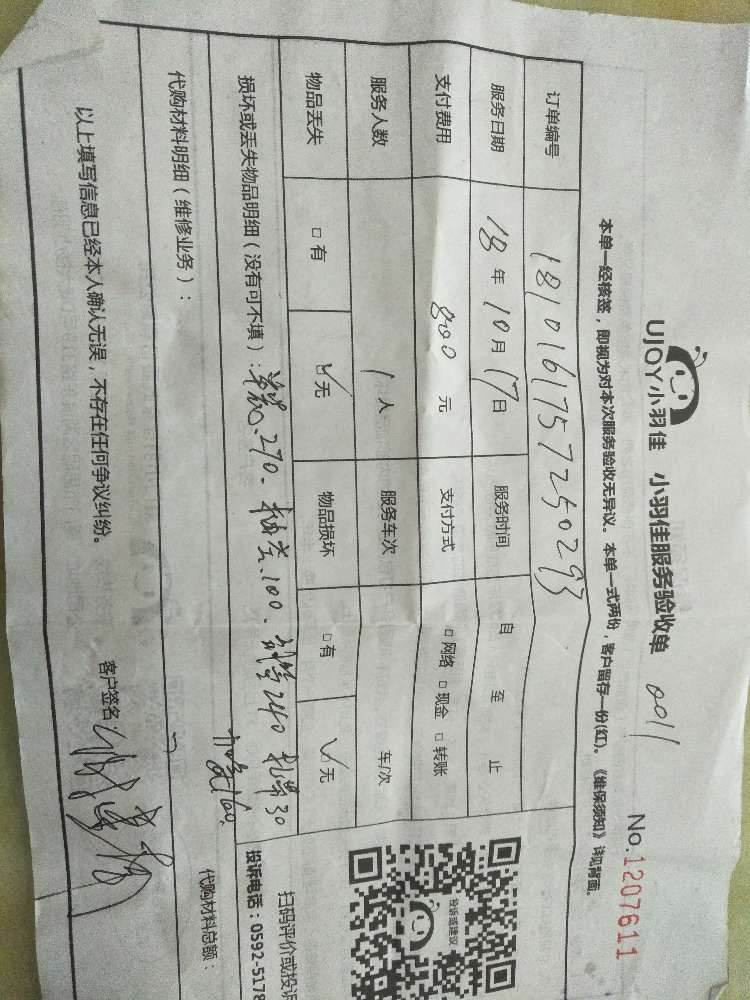 UJOY小羽佳 小羽佳服务验收单 0011
No.1207611
本单一经核签，即视为对本次服务验收无异议。本单一式两份，客户留存一份(红)。《维保须知》详见背面。
订单编号 1810161757250293
服务日期 18年10月17日 服务时间 自 至 止
支付费用 800元 支付方式 □网络 □现金 □转账
服务人数 1人 服务车次 车/次
物品丢失 □有 ☑无 物品损坏 □有 ☑无
损坏或丢失物品明细（没有可不填）： 270. 100. 240 30
160.
代购材料明细（维修业务）：
代购材料总额：
以上填写信息已经本人确认无误，不存在任何争议纠纷。
客户签名：
投诉或建议
扫码评价或投诉
投诉电话：0592-5178